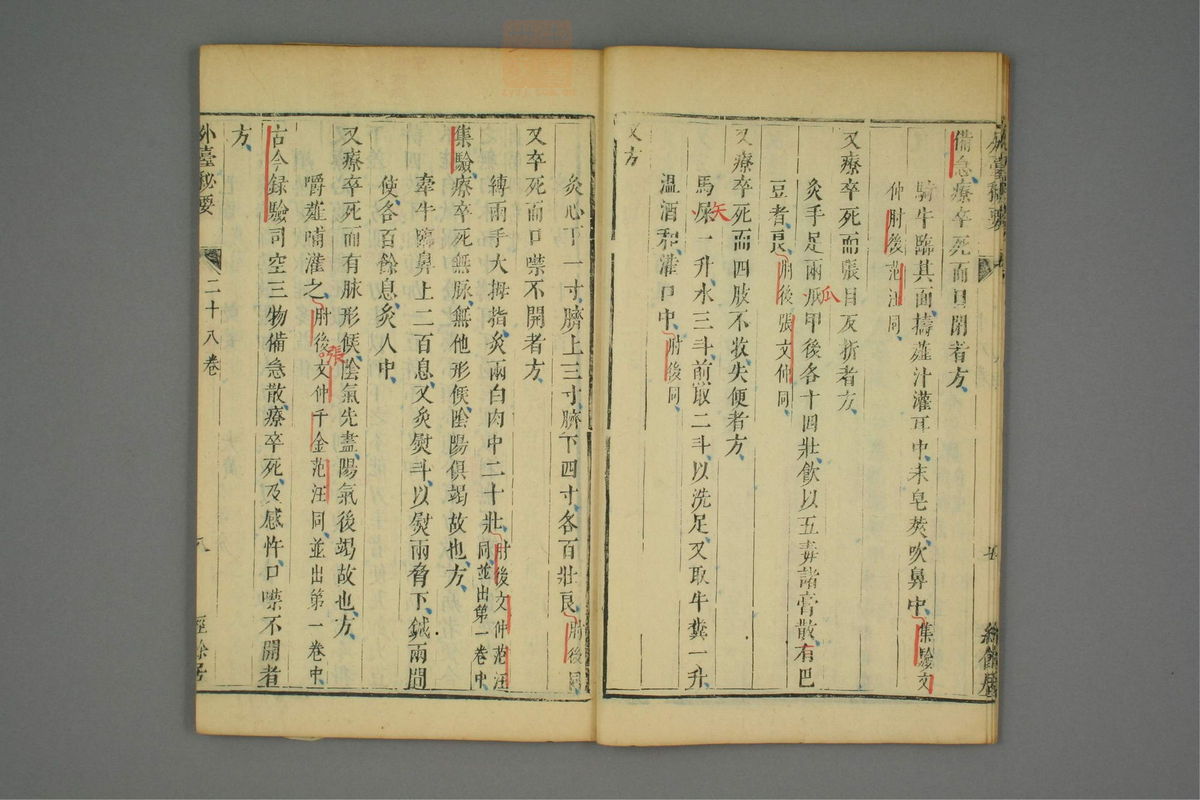 備急療卒死而口閉者方
騎牛臨其面擣薤汁灌耳中末皂莢吹鼻中集驗文
仲肘後范汪同
又療卒死而張目反折者方
灸手足兩爪甲後各十四壯飲以五毒諸膏散有巴
豆者良肘後張文仲同
又療卒死而四肢不收失便者方
馬屎一升水三斗煎取二斗以洗足又取牛糞一升
矢
温酒和灌口中肘後同
又方
灸心下一寸臍上三寸臍下四寸各百壯良肘後同
又卒死而口噤不開者方
縛兩手大拇指灸兩白肉中二十壯肘後文仲范汪
同並出第一卷中
集驗療卒死無脉無他形候陰陽俱竭故也方
牽牛臨鼻上二百息又灸熨斗以熨兩脅下鍼兩間
使各百餘息灸人中
又療卒死而有脉形候陰氣先盡陽氣後竭故也方
嚼薤哺灌之肘後張文仲千金范汪同並出第一卷中
古今録驗司空三物備急散療卒死及感忤口噤不開者
方
外臺秘要 二十八卷 八 經餘居